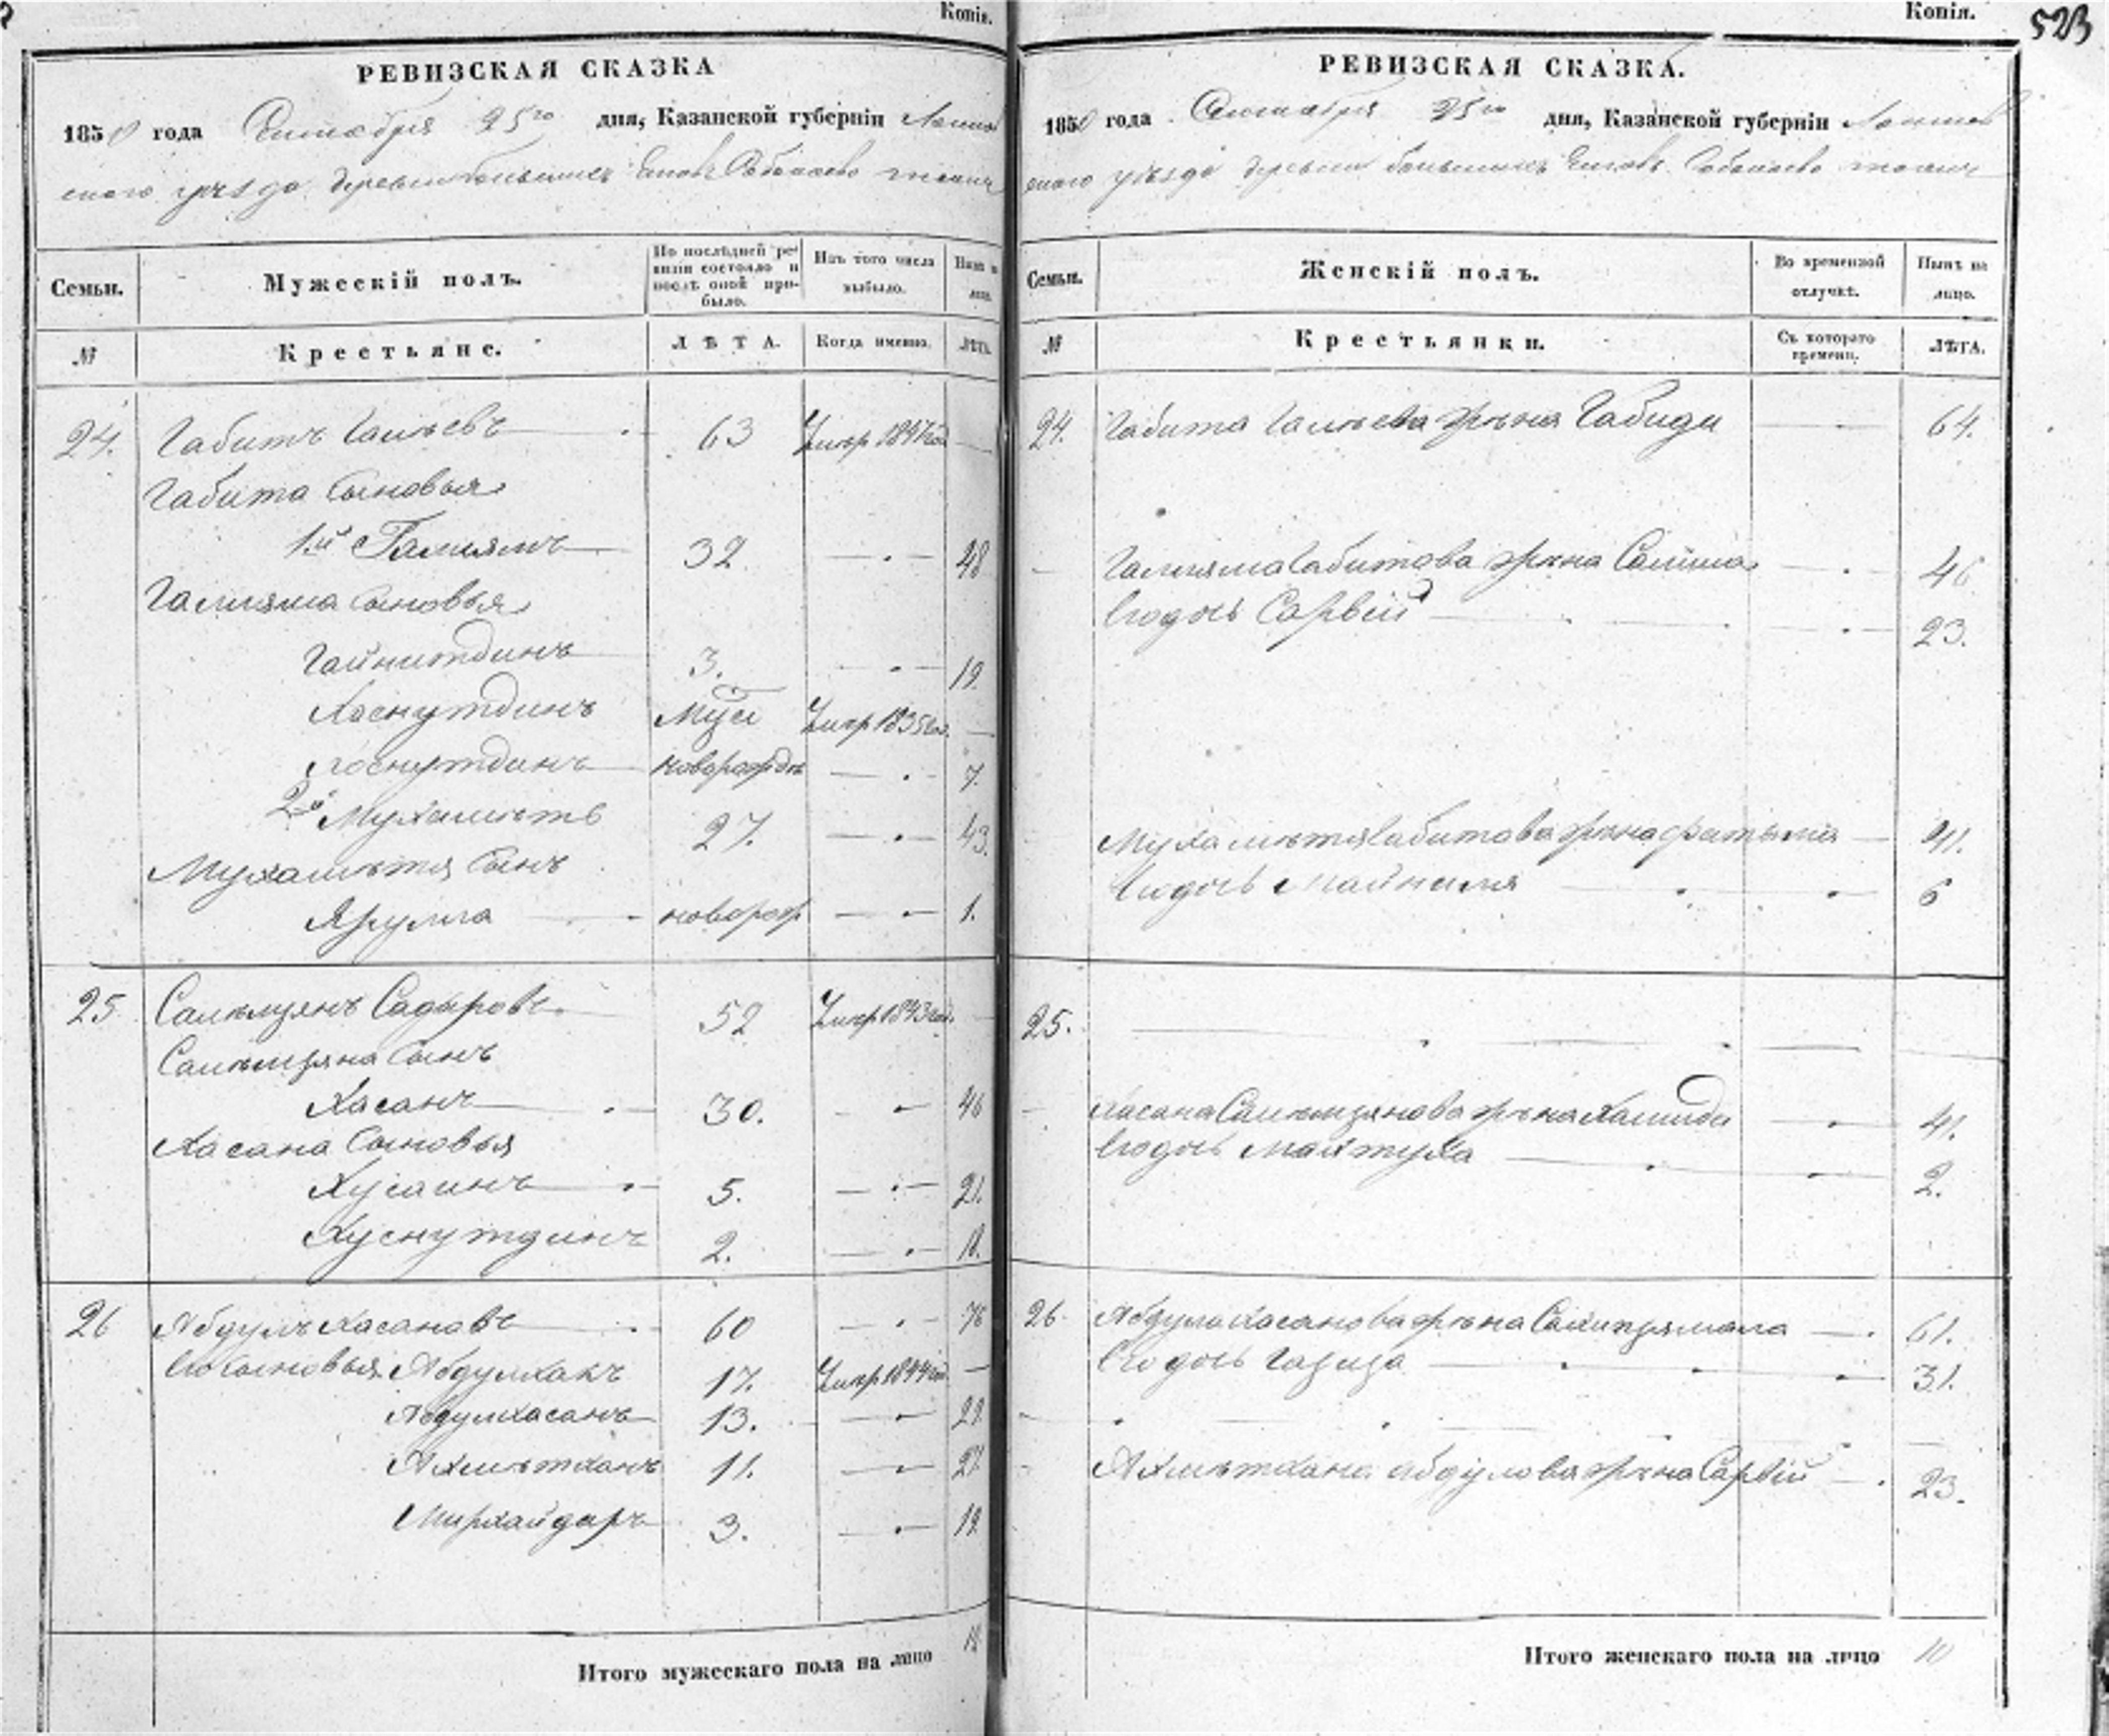 Копія.
РЕВИЗСКАЯ СКАЗКА
1850 года Сентября 25го дня, Казанской губерніи
ского уезда деревни
Семьи.
Мужескій полъ.
По послѣдней ревизіи состояло и послѣ оной прибыло.
Изъ того числа выбыло.
Нынѣ на лицо.
№
Крестьяне.
ЛѢТА.
Когда именно.
ЛѢТА.
24. Габитъ 63 Умер 1847 год
Габита сыновья
1й Галлямъ 32 48
Галляма сыновья
Гайнитдинъ 3. 19
Хоснутдинъ Умер 1835 год.
Хоснутдинъ новорожден 7.
2й Мухаметь 27. 43.
Мухаметя сынъ
Ярулла новорож 1.
25 Салемзянъ Садыровъ 52 Умер 1843 год.
Салемзяна сынъ
Хасанъ 30. 46
Хасана сыновья
Хусаинъ 5. 21.
Хуснутдинъ 2. 18.
26 Абдулъ Хасановъ 60 76
Его сыновья Абдулхакъ 17. Умер 1844 год
Абдулхасанъ 13. 29
Ахметханъ 11. 27.
Мирхайдаръ 3. 19.
Итого мужескаго пола на лицо
Копія.
523
РЕВИЗСКАЯ СКАЗКА.
1850 года Сентября 25го дня, Казанской губерніи
ского уезда деревни
Семьи.
Женскій полъ.
Во временной отлучкѣ.
Нынѣ на лицо.
№
Крестьянки.
Съ котораго времени.
ЛѢТА.
24. Габита жена Габида 64.
Галляма Габитова жена 46
Его дочь Сарвій 23.
Мухаметя Габитова жена Фатыма 41.
Его дочь Майкамя 6
25.
Хасана Салемзянова жена Хамида 41.
Его дочь Махтуха 2.
26. Абдула Хасанова жена 61.
Его дочь Газиза 31.
Ахметхана Абдулова жена Сарвій 23.
Итого женскаго пола на лицо 10